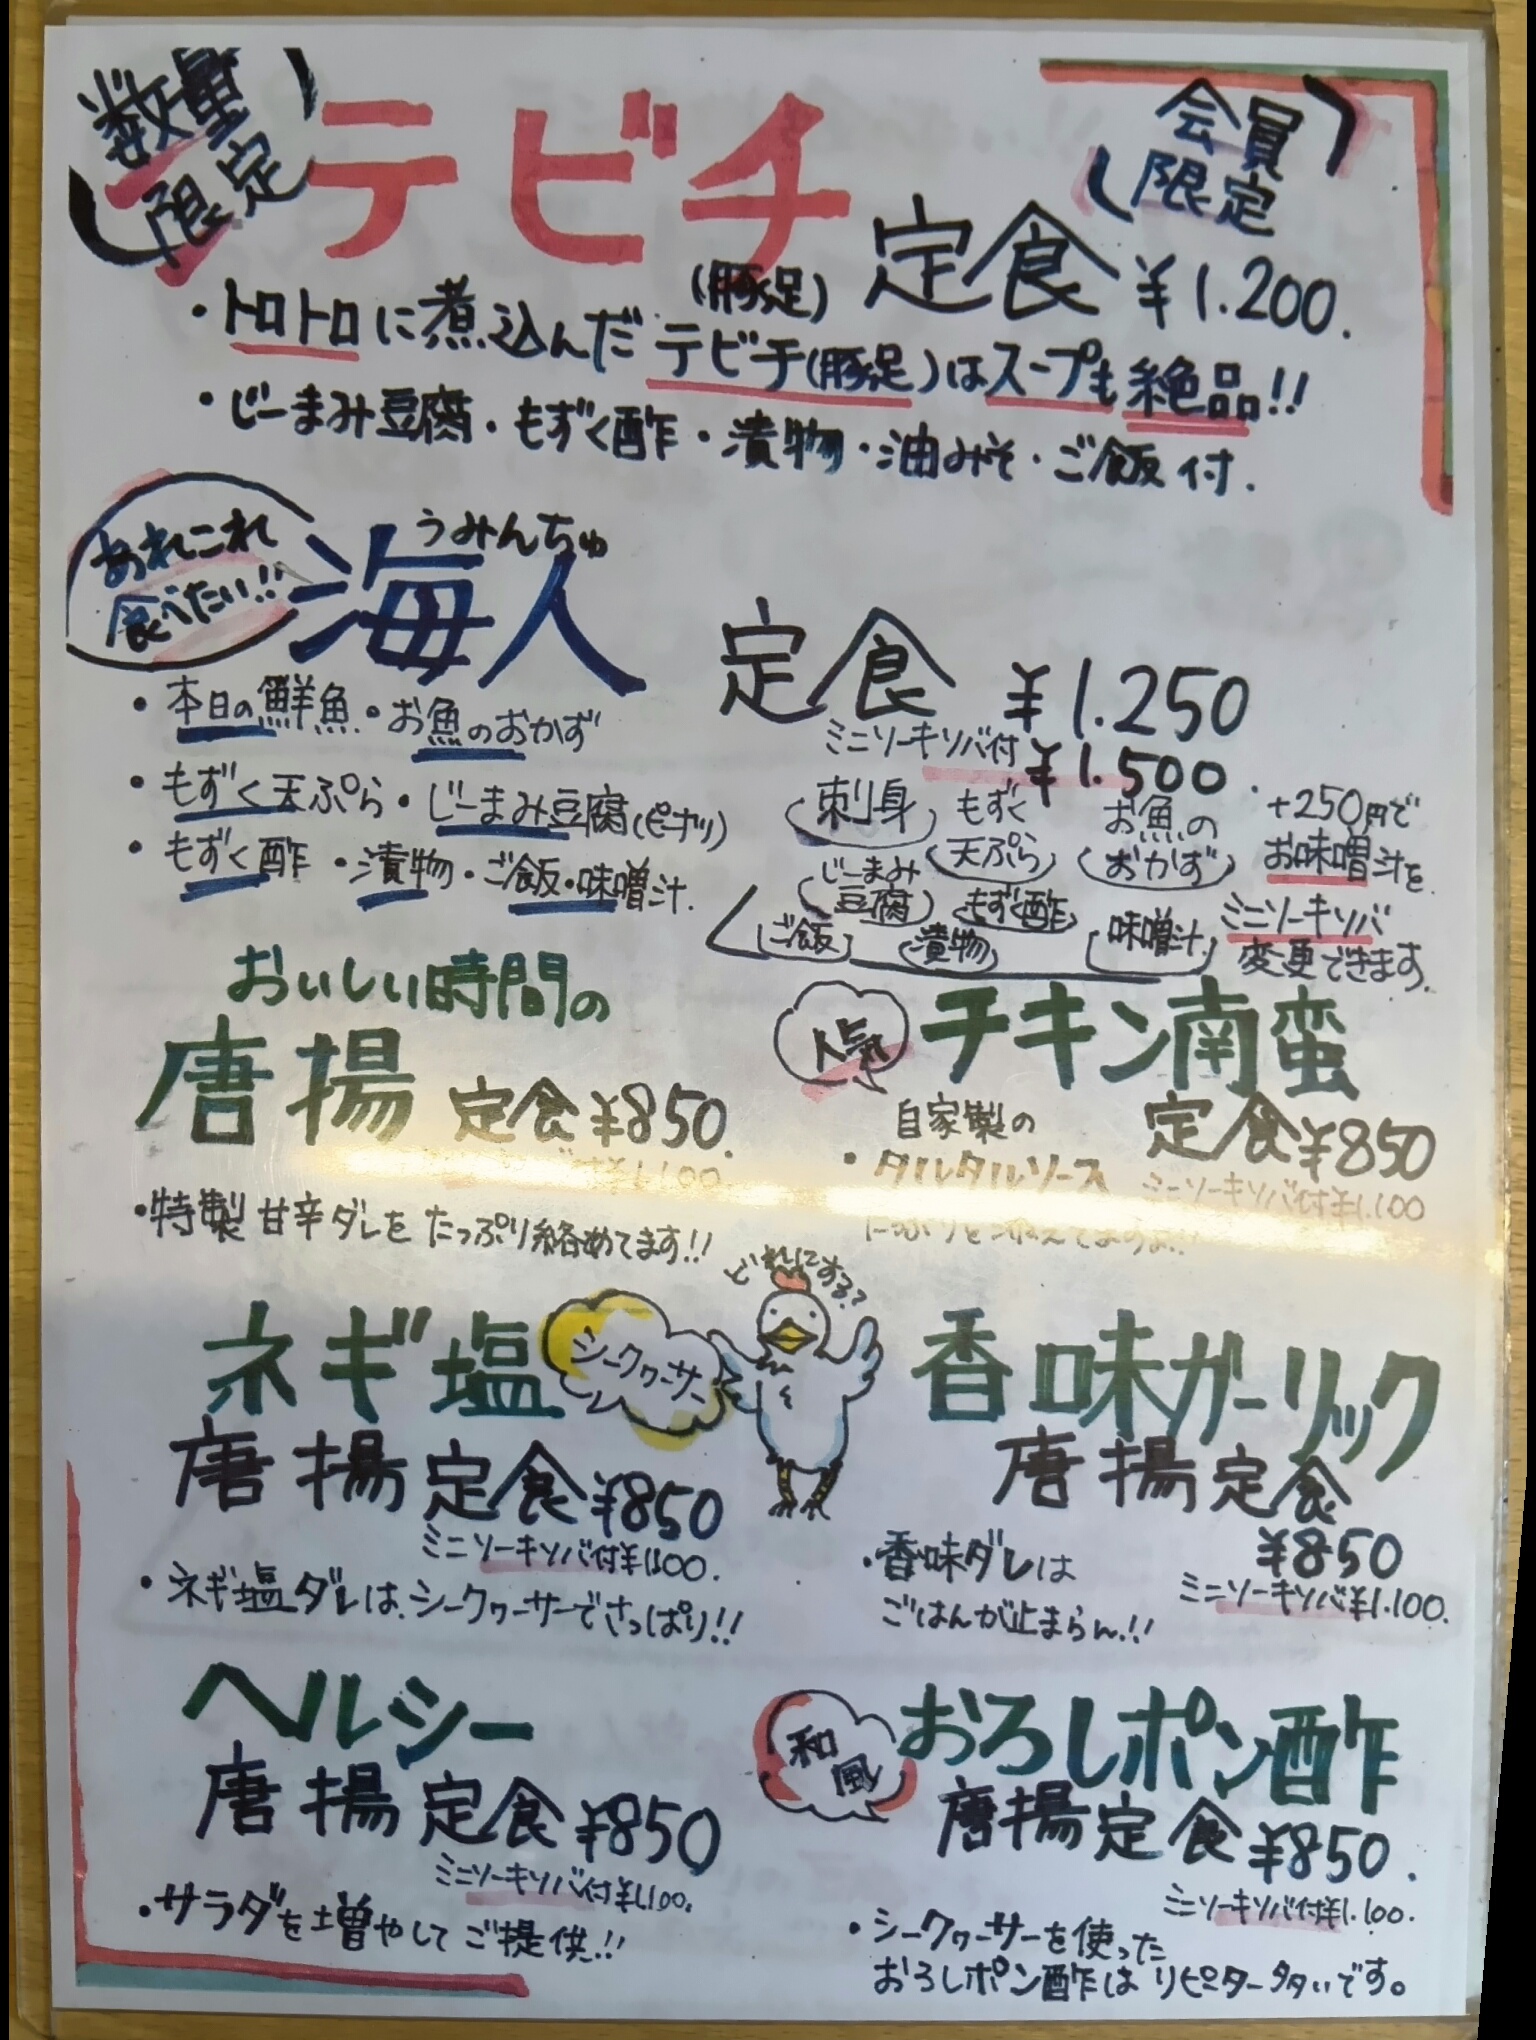 数量
限定
テビチ
(豚足)
定食 ¥1.200.
会員
限定
・トロトロに煮込んだテビチ(豚足)はスープも絶品!!
・じーまみ豆腐・もずく酢・漬物・油みそ・ご飯付.
あれこれ
食べたい!!
うみんちゅ
海人
定食 ¥1.250
ミニソーキソバ付 ¥1.500.
・本日の鮮魚・お魚のおかず
・もずく天ぷら・じーまみ豆腐(ピーナツ)
・もずく酢・漬物・ご飯・味噌汁.
刺身
もずく
天ぷら
お魚の
おかず
じーまみ
豆腐
もずく酢
ご飯
漬物
味噌汁
+250円で
お味噌汁を
ミニソーキソバ
変更できます.
おいしい時間の
唐揚 定食 ¥850.
付¥1.100.
・特製甘辛ダレをたっぷり絡めてます!!
人気
チキン南蛮
定食¥850
ミニソーキソバ付¥1.100
・自家製の
タルタルソース
どれにする?
ネギ塩
シークヮーサー
唐揚定食¥850
ミニソーキソバ付¥1100.
・ネギ塩ダレは、シークヮーサーでさっぱり!!
香味ガーリック
唐揚定食
¥850
ミニソーキソバ¥1.100.
・香味ダレは
ごはんが止まらん!!
ヘルシー
唐揚定食¥850
ミニソーキソバ付¥1.100.
・サラダを増やしてご提供!!
和風
おろしポン酢
唐揚定食¥850.
ミニソーキソバ付¥1.100.
・シークヮーサーを使った
おろしポン酢はリピーター多いです。